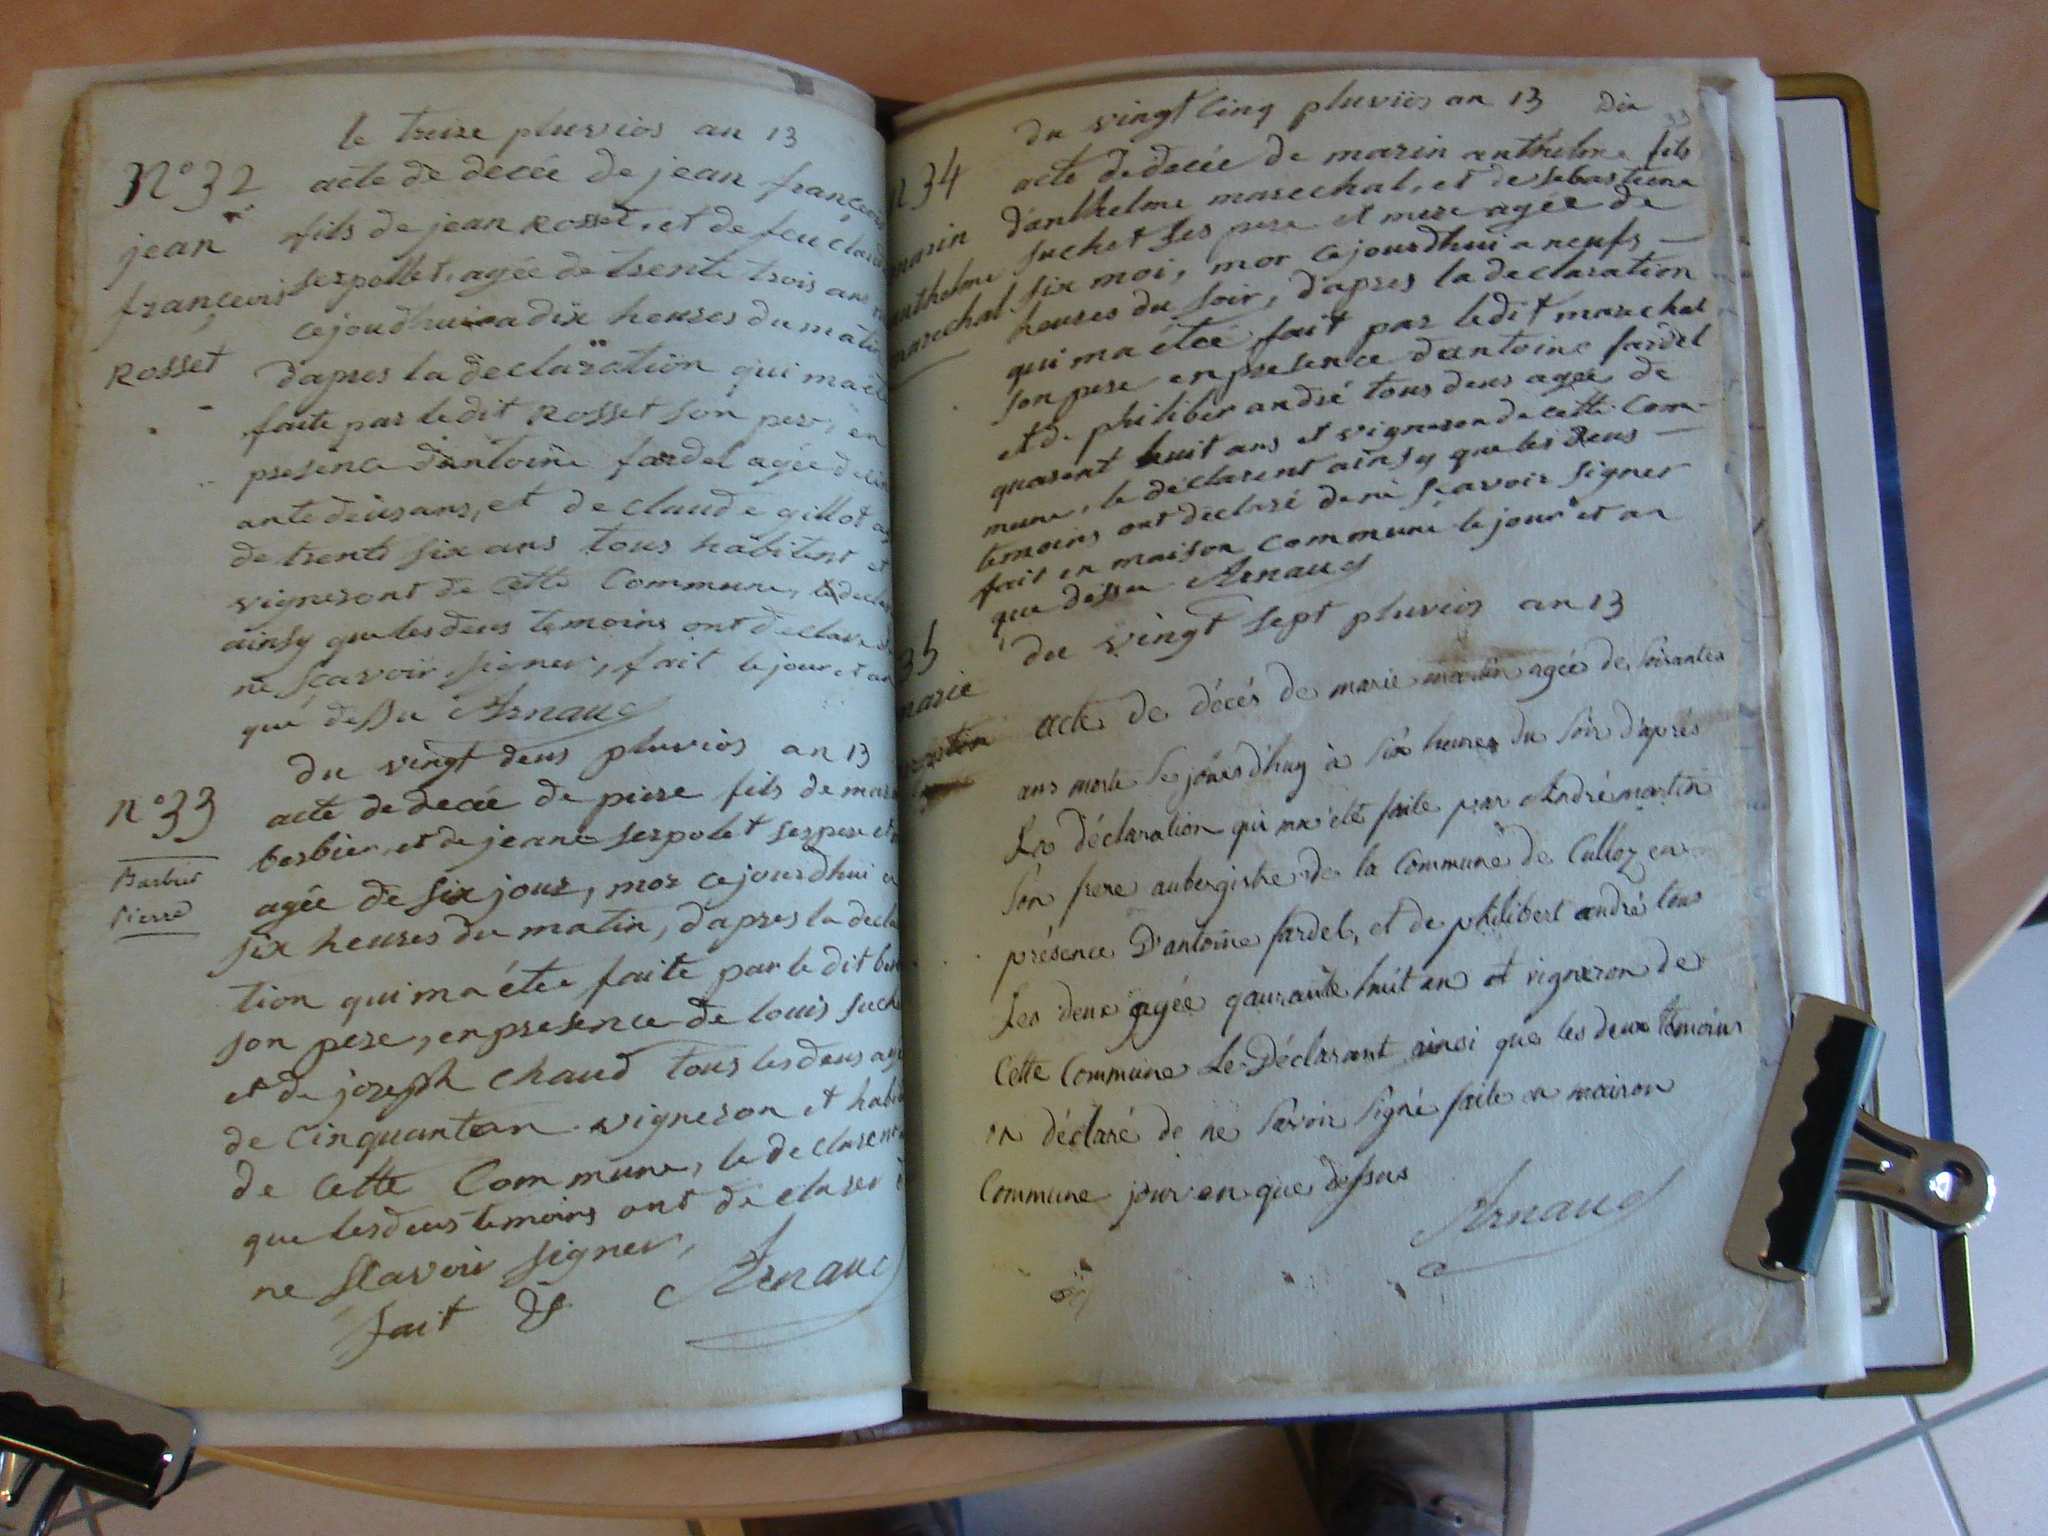 le treize pluvios an 13
N° 32 acte de decée de jean françois
jean fils de jean Rosset, et de feu claud
françois serpollet, agée de trente trois ans
cejoudhui a dix heures du matin
Rosset dapres la declaration qui ma été
faite par ledit Rosset son pere, en
presence dantoine fardel agée de cin
ante deus ans, et de claude gillot ag
de trente six ans tous habitent et
vigneront de cette Commune, le decla
ainsy que les deus temoins ont declare
ne scavoir signer, fait le jour et an
que dessu Arnaud
du vingt deus pluvios an 13
n° 33 acte de decée de piere fils de mar
berbier et de jeane serpolet ses pere et
Barbier agée de six jour, mor cejourdhui a
Pierre six heures du matin, dapres la decla
tion qui ma étée faite par le dit ber
son pere, en presence de louis such
et de joseph chaud tous les deus ag
de cinquantan vigneron et habi
de cette Commune, le declarent
que les deus temoins ont declarer
ne scavoir signer,
fait & Arnaud
du vingt cinq pluvios an 13 Dix
33
n 34 acte de decée de marin anthelme fils
marin danthelme marechal, et de sebastiene
anthelme suchet ses pere et mere agée de
marechal six moi, mor cejourdhui a neufs
heures du soir, dapres la declaration
qui ma étée fait par ledit marechal
son pere en presence dantoine fardel
et de philiber andré tous deus agée de
quarent huit ans et vigneron de cette Com-
mune, le declarent ainsy que les deus
temoins ont déclaré de ne scavoir signer
fait en maison commune le jour et an
que dessu Arnaud
35 du vingt sept pluvios an 13
marie acte de décés de marie martin agée de soixantes
martin ans morte se jourd'huy à six heures du soir d'aprés
La déclaration qui ma été faite par André martin
son frere aubergiste de la Commune de Culloz en
présence D'antoine fardel, et de philibert andré tous
Les deux agée quarante huit an et vigneron de
Cette Commune Le Déclarant ainsi que les deux témoins
on déclaré de ne savoir signé faite en maison
Commune jour en que dessus
Arnaud